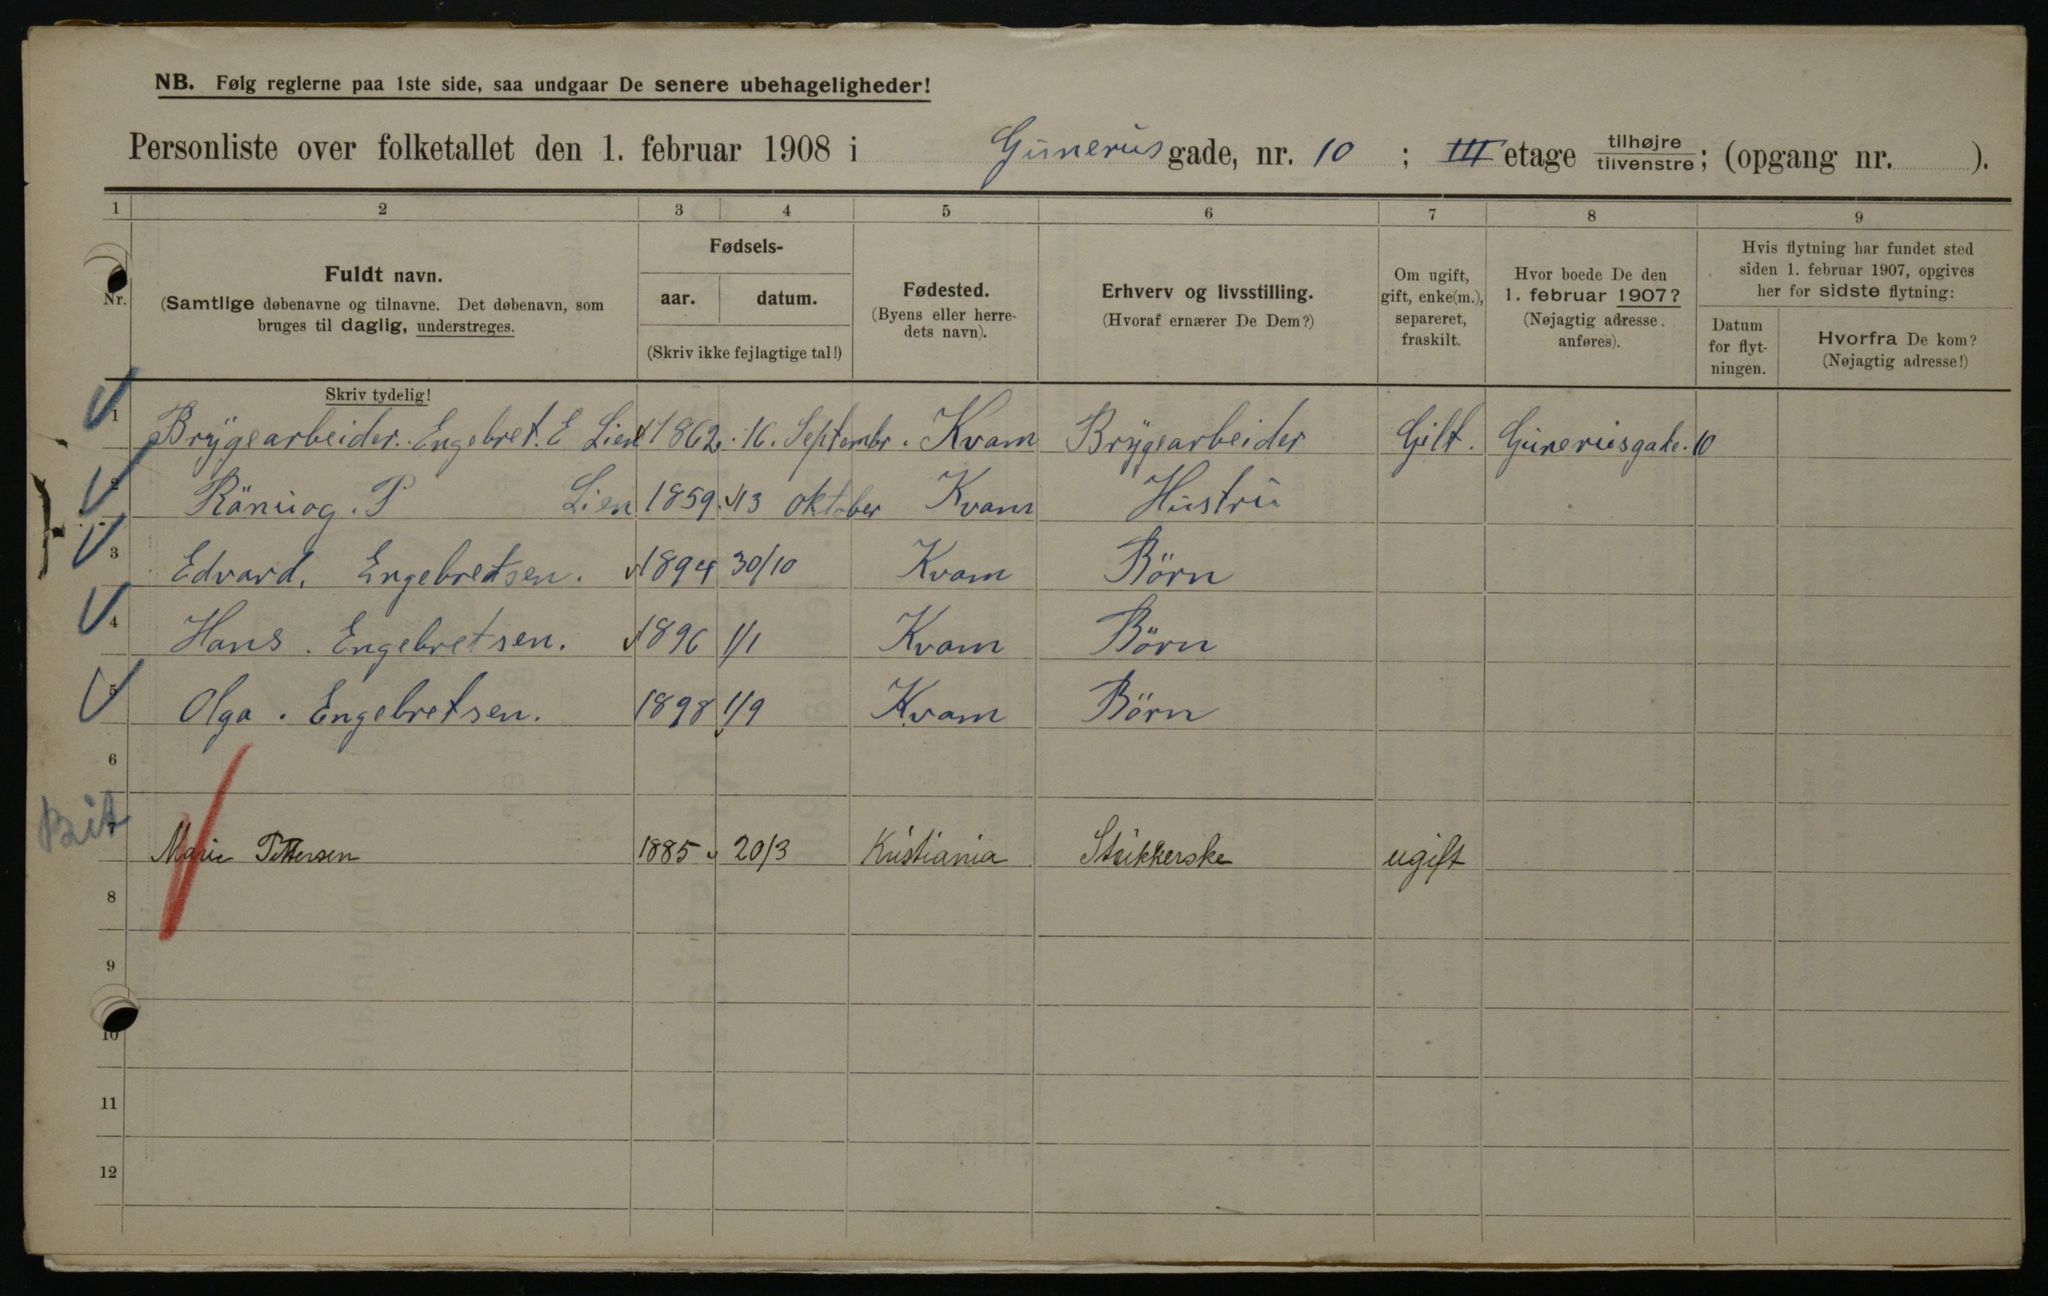 NB. Følg reglerne paa 1ste side, saa undgaar De senere ubehageligheder!
Personliste over folketallet den 1. februar 1908 i Gunerius gade, nr. 10 ; III etage tilhøjre tilvenstre; (opgang nr. ).
1 2 3 4 5 6 7 8 9
Nr.
Fuldt navn.
(Samtlige døbenavne og tilnavne. Det døbenavn, som
bruges til daglig, understreges.
Skriv tydelig!
Fødsels-
aar. datum.
(Skriv ikke fejlagtige tal!)
Fødested.
(Byens eller herre-
dets navn).
Erhverv og livsstilling.
(Hvoraf ernærer De Dem?)
Om ugift,
gift, enke(m.),
separeret,
fraskilt.
Hvor boede De den
1. februar 1907?
(Nøjagtig adresse
anføres).
Hvis flytning har fundet sted
siden 1. februar 1907, opgives
her for sidste flytning:
Datum
for flyt-
ningen.
Hvorfra De kom?
(Nøjagtig adresse!)
1 Brygearbeider. Engebret. E Lien 1862. 16. Septembr. Kvam Brygearbeider Gift. Guneriusgade. 10
2 Rönnog. P Lien 1859. 13 Oktober Kvam Hustru
3 Edvard. Engebretsen. 1894 30/10 Kvam Börn
4 Hans. Engebretsen. 1896 1/1 Kvam Börn
5 Olga. Engebretsen. 1898 1/9 Kvam Börn
6
Marie Pettersen 1885 20/3 Kristiania Strikkerske ugift
8
9
10
11
12